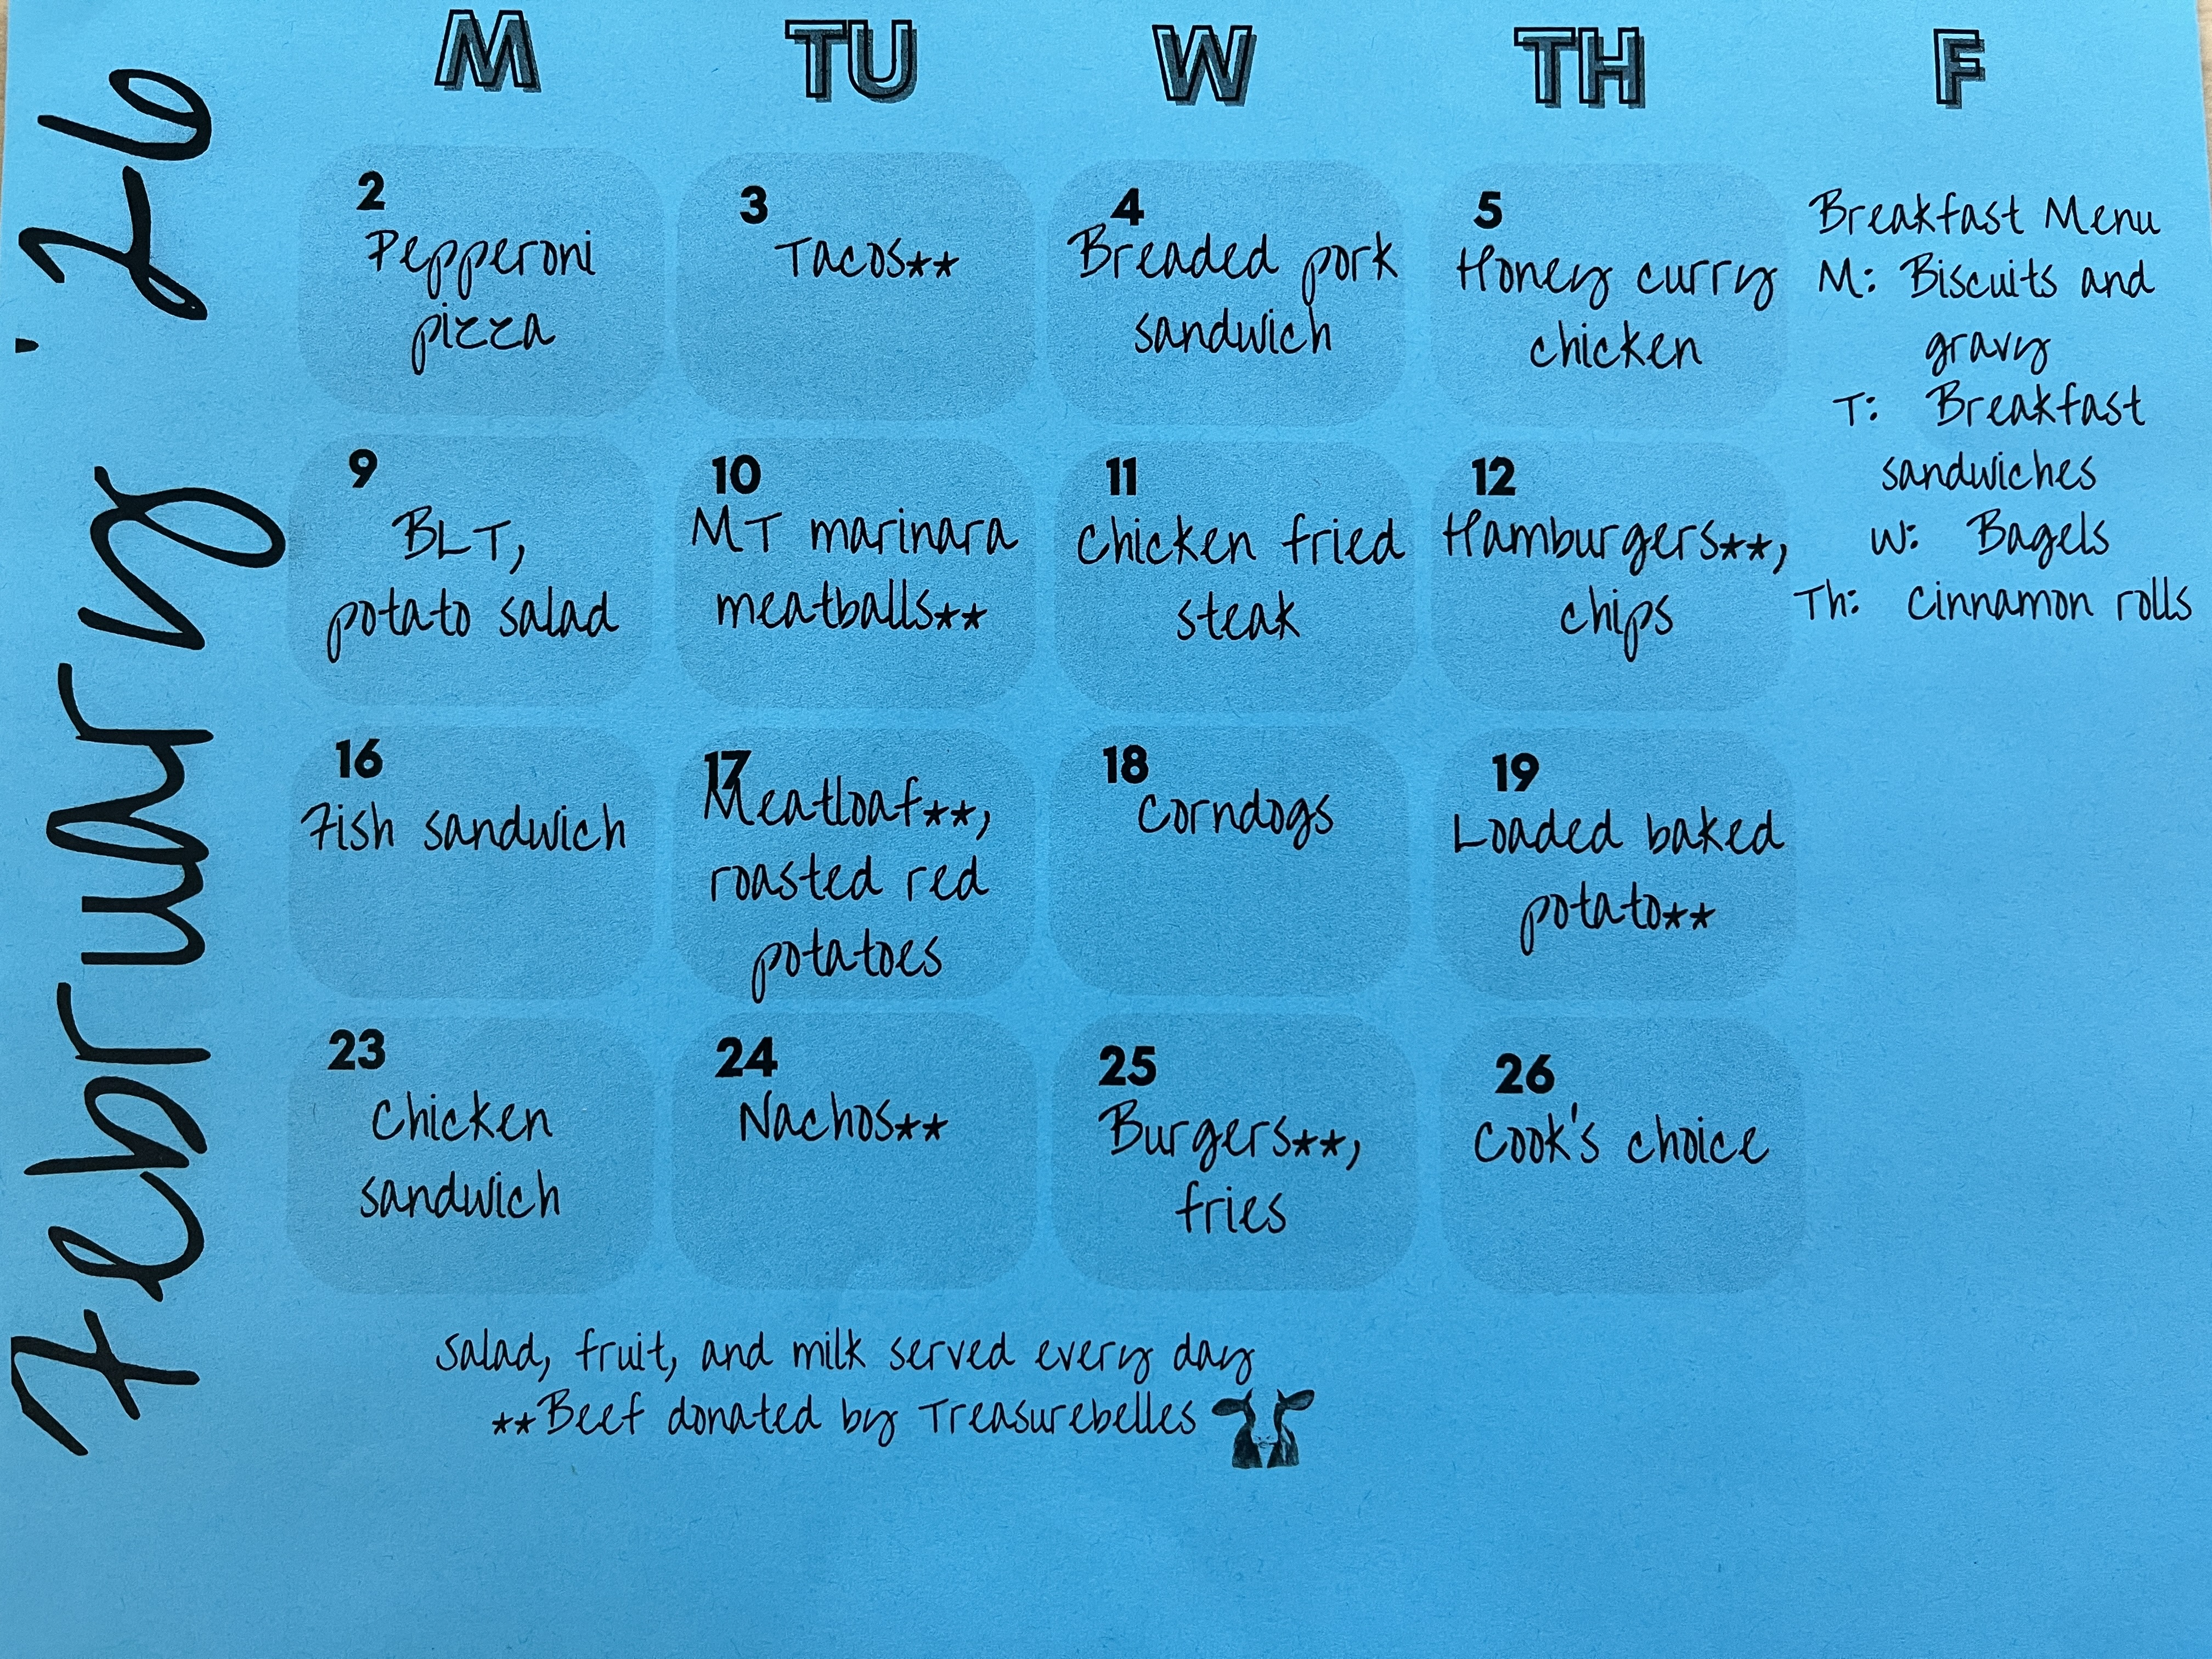 February '26
M TU W TH F
2
Pepperoni
pizza
3
Tacos**
4
Breaded pork
sandwich
5
Honey curry
chicken
Breakfast Menu
M: Biscuits and
gravy
T: Breakfast
sandwiches
W: Bagels
Th: Cinnamon rolls
9
BLT,
potato salad
10
MT marinara
meatballs**
11
Chicken fried
steak
12
Hamburgers**,
chips
16
Fish sandwich
17
Meatloaf**,
roasted red
potatoes
18
Corndogs
19
Loaded baked
potato**
23
Chicken
sandwich
24
Nachos**
25
Burgers**,
fries
26
Cook's choice
Salad, fruit, and milk served every day
**Beef donated by Treasurebelles